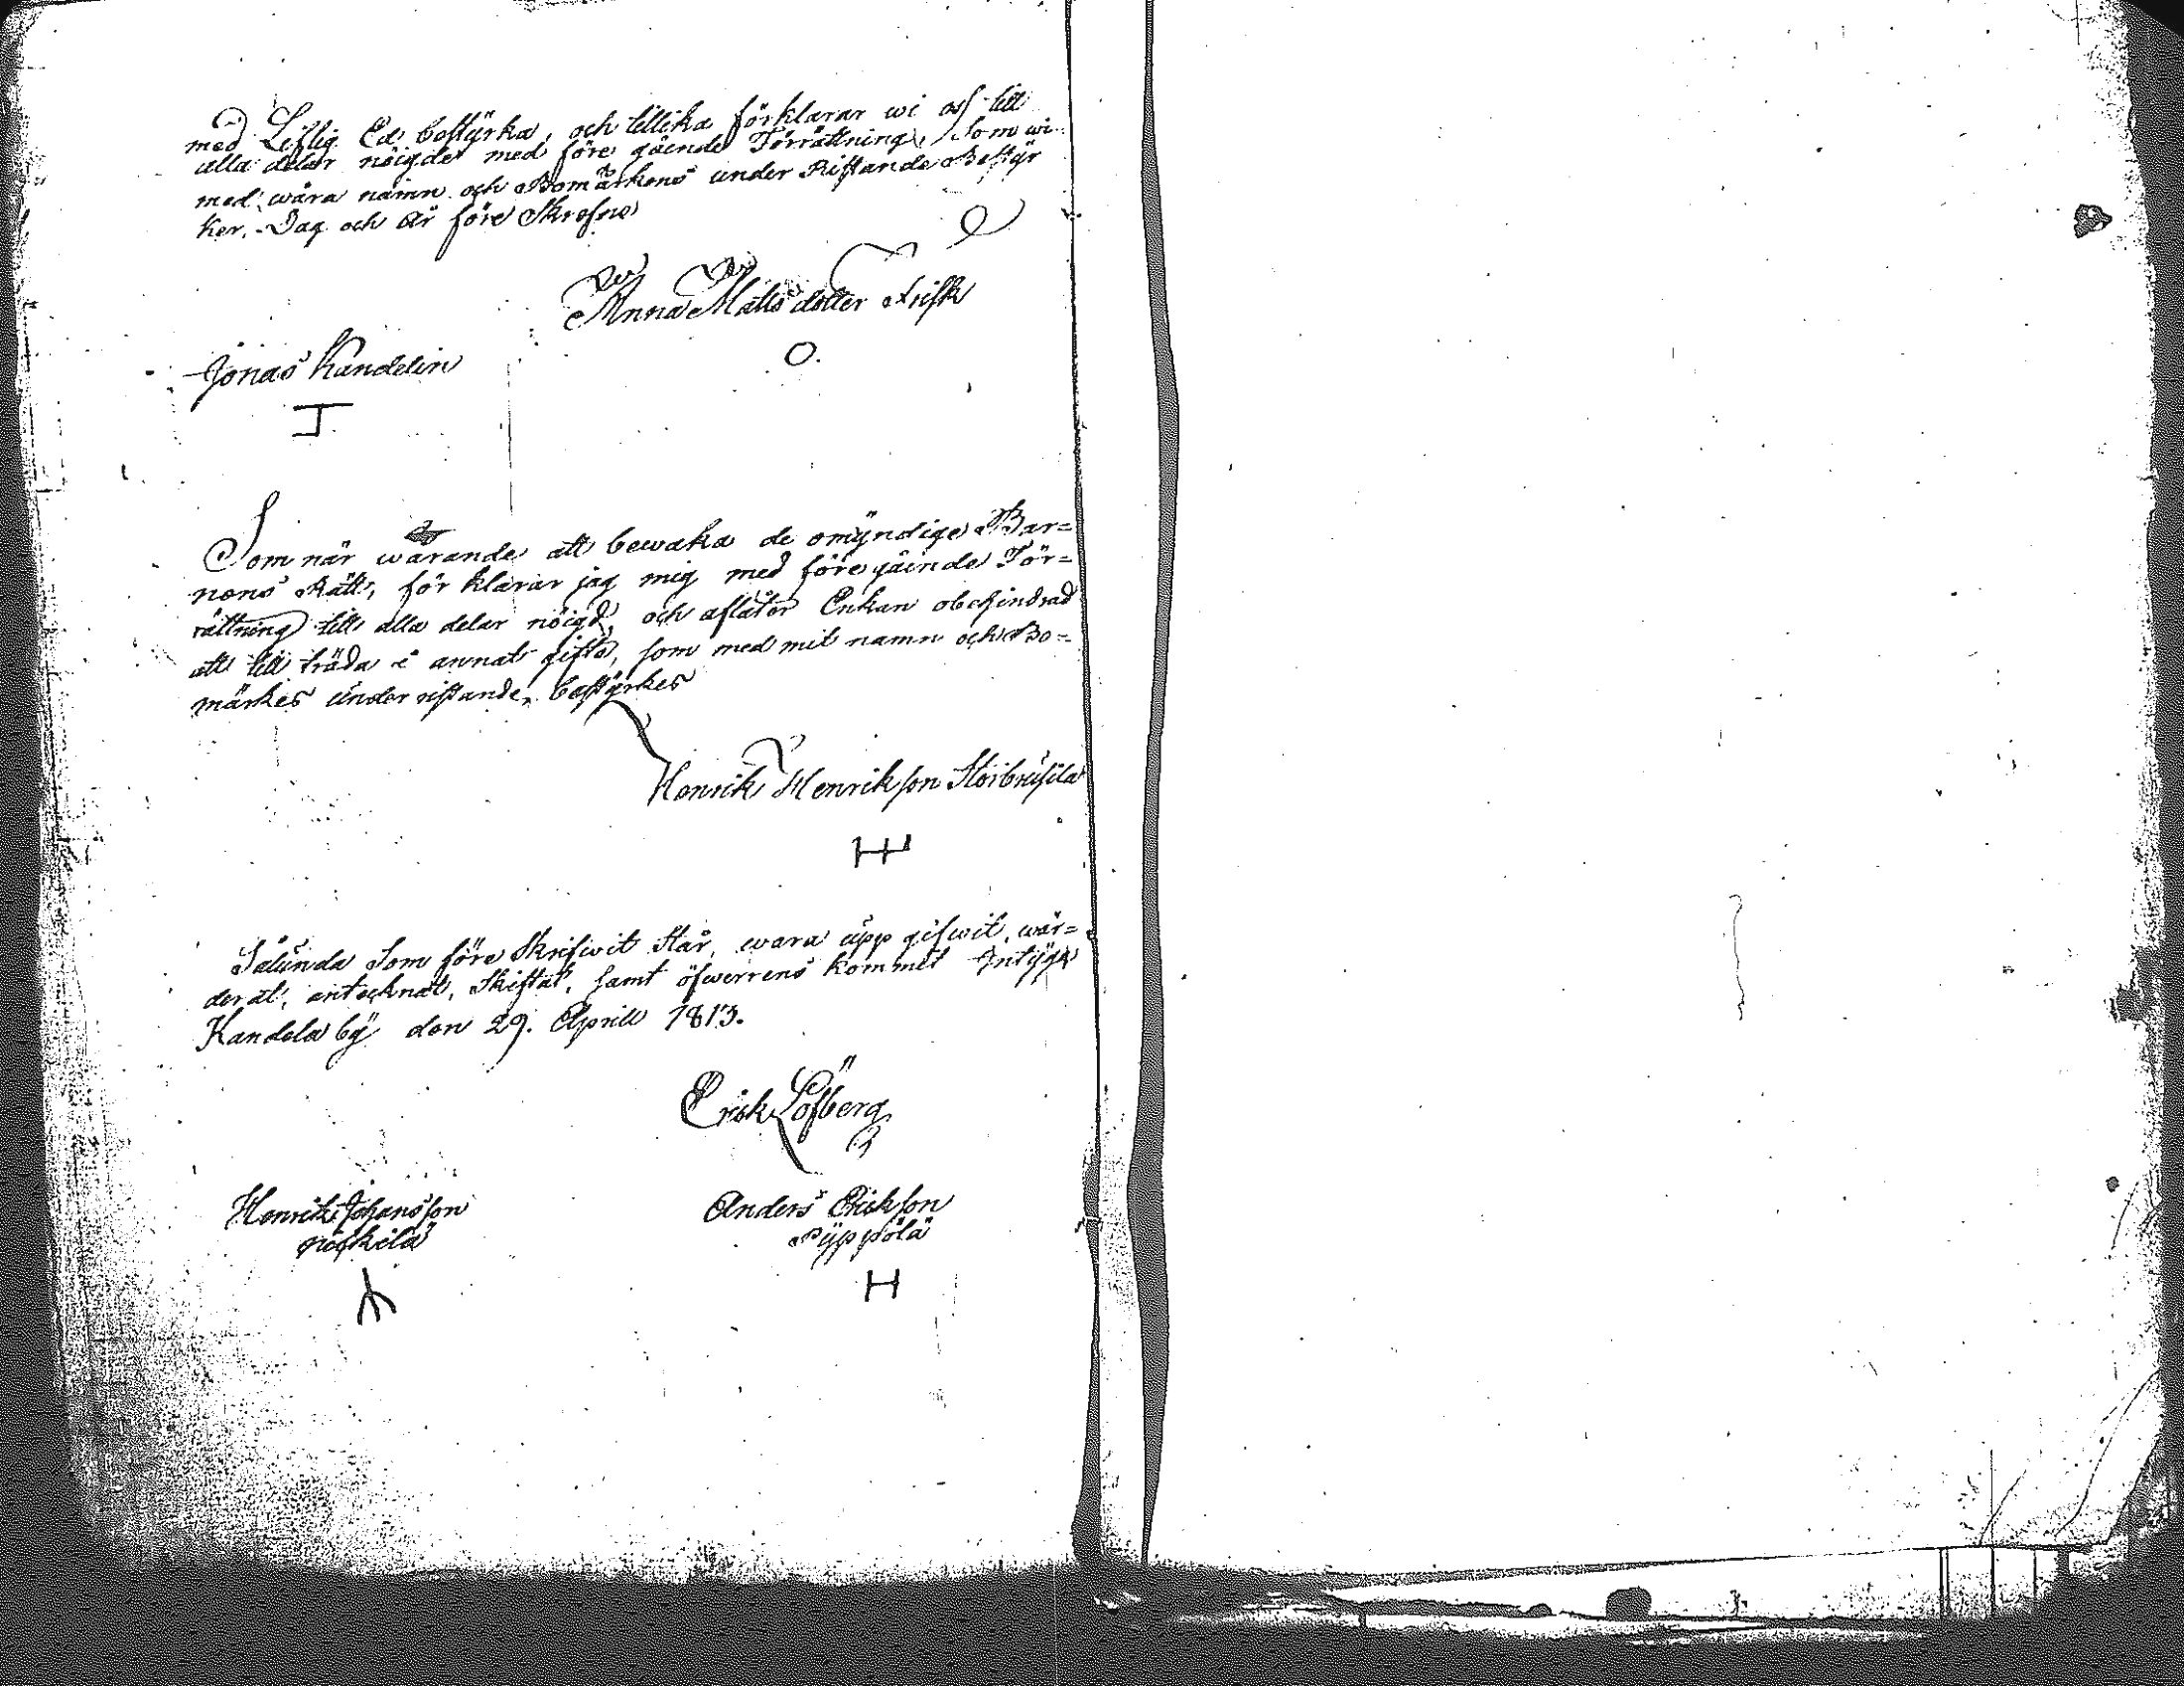 med Liflig Ed bestÿrka, och tillika förklarar wi oss till
alla delar nöigde med före gående Förrättning, Som wi
med wåra namn och Bomärkens under Ristande Bestÿr
ker. Dag och År före Skrefne
Anna Matts dotter Frisk
O.
Jonas Kandelin
Som när warande att bewaka de omÿndige Bar=
nens Rätt, för klarar jag mig med före gåinde För=
rättning till alla delar nöigd, och aflåter Enkan obehindrad
att till träda i annat gifte, som med mit namn och Bo=
märkes under ristande, bestÿrkes
Henrik Henrikson
Sålunda Som före Skrifwit Står, wara upp gifwit, wär=
derat, antecknat, Skiftat, samt öfwerrens kommit Intÿga
Kandela bÿ den 29. Aprill 1813.
Erik Löfberg
Henrik Johansson Anders Erickson
Pÿppölä
H